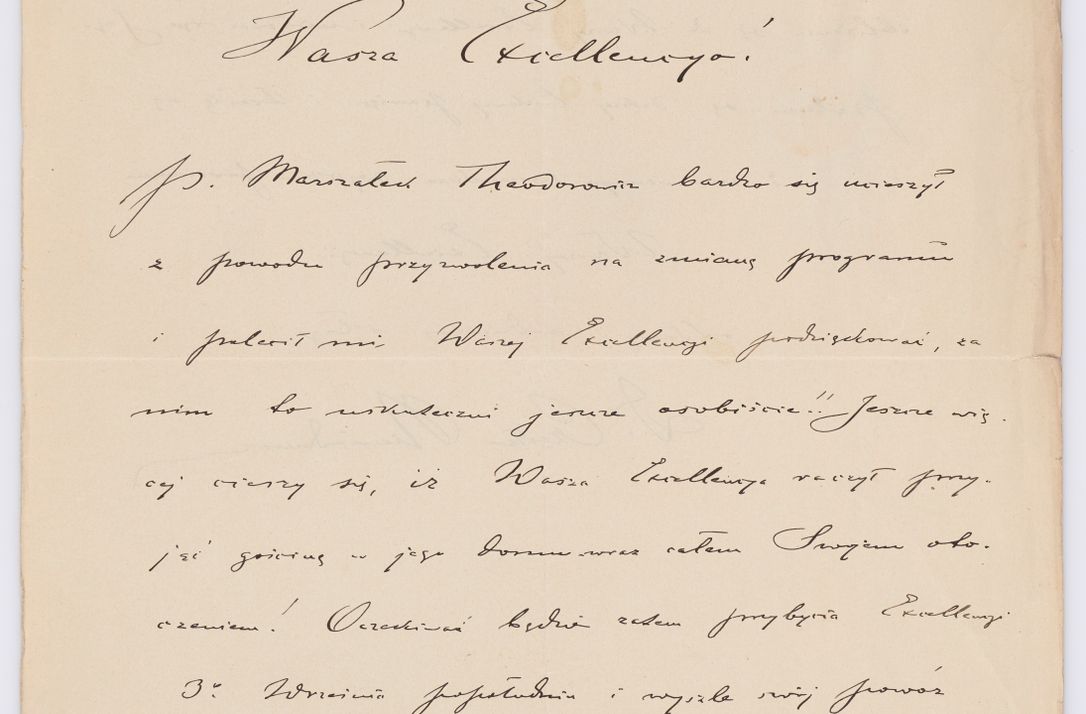 Wasza Excellencyo!
P. Marszałek Theodorowicz bardzo się ucieszył
z powodu przyzwolenia na zmianę programu
i polecił mi, Waszej Excellencyi podziękować, za
nim to uskuteczni jeszcze osobiście!! Jeszcze wię-
cej cieszy się, iż Wasza Excellencya raczył przy-
jąć gościnę w jego domu wraz całem Swojem oto-
czeniem! Oczekiwać będzie zatem przybycia Excellencyi
3º Września popołudniu i wyszle swój powóz